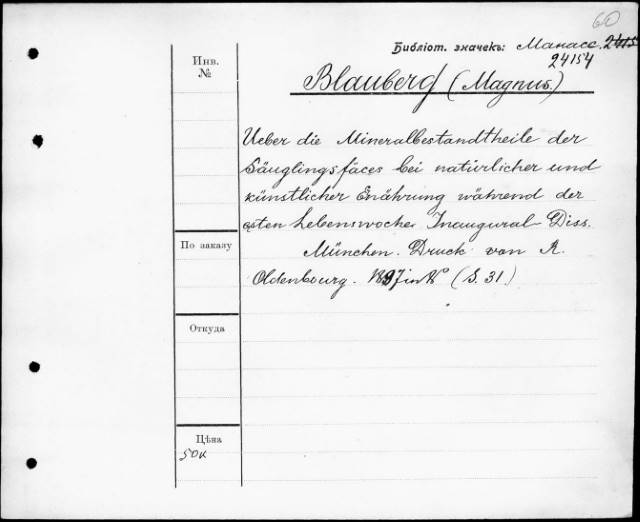 60
Библіот. значекъ: Манасс. 2415
24154
Инв.
№
Blauberg (Magnus.)
Ueber die Mineralbestandtheile der
Säuglingsfäces bei natürlicher und
künstlicher Enährung während der
esten Lebenswoche. Inaugural-Diss.
München. Druck von R.
Oldenbourg. 1897 in 8° (S. 31.)
По заказу
Откуда
Цѣна
50к